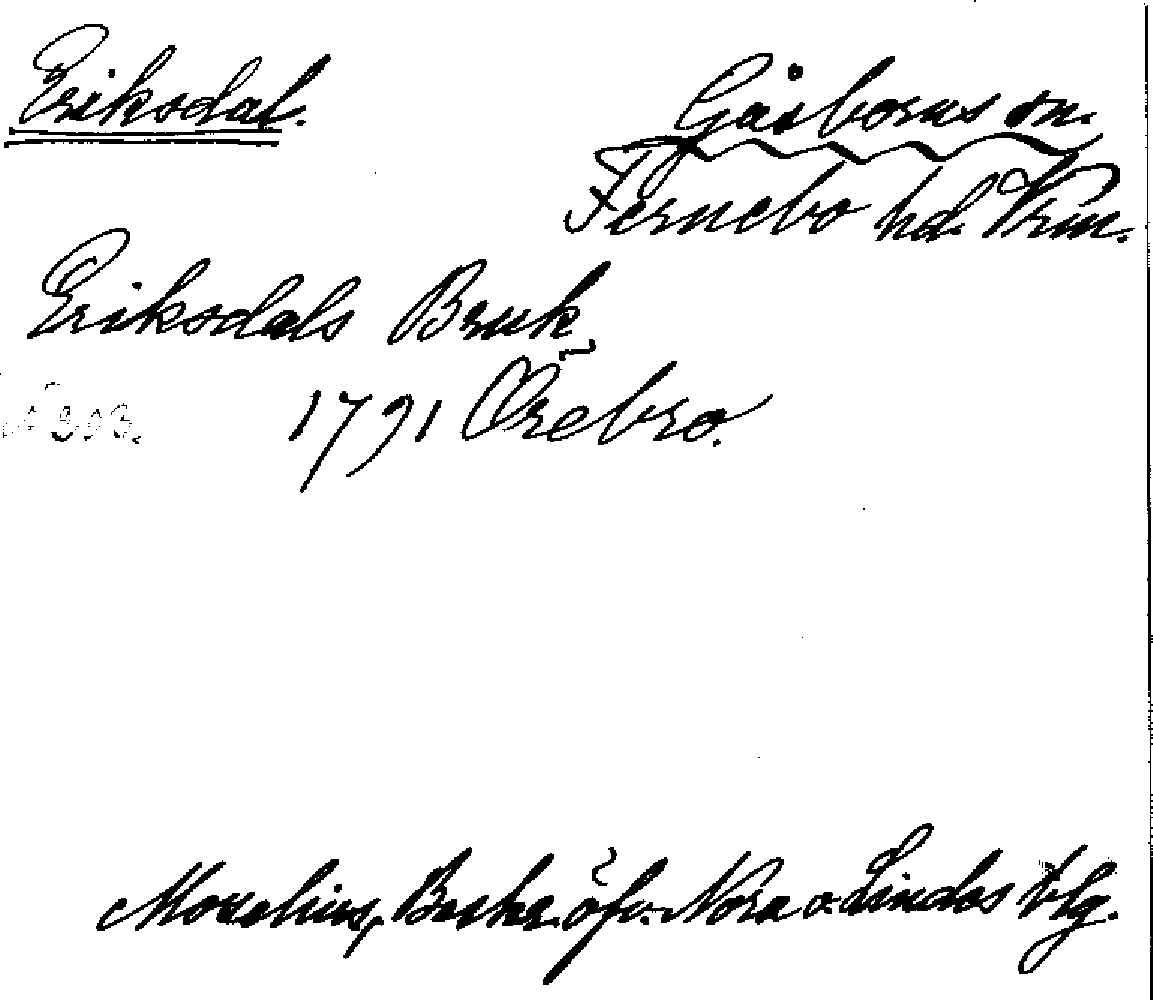 Eriksdal.
Gåsborns sn.
Fernebo hd. Vrm.
Eriksdals Bruk
1791 Örebro.
303.
Morelius, Beskr. öfv. Nora o. Lindes blg.